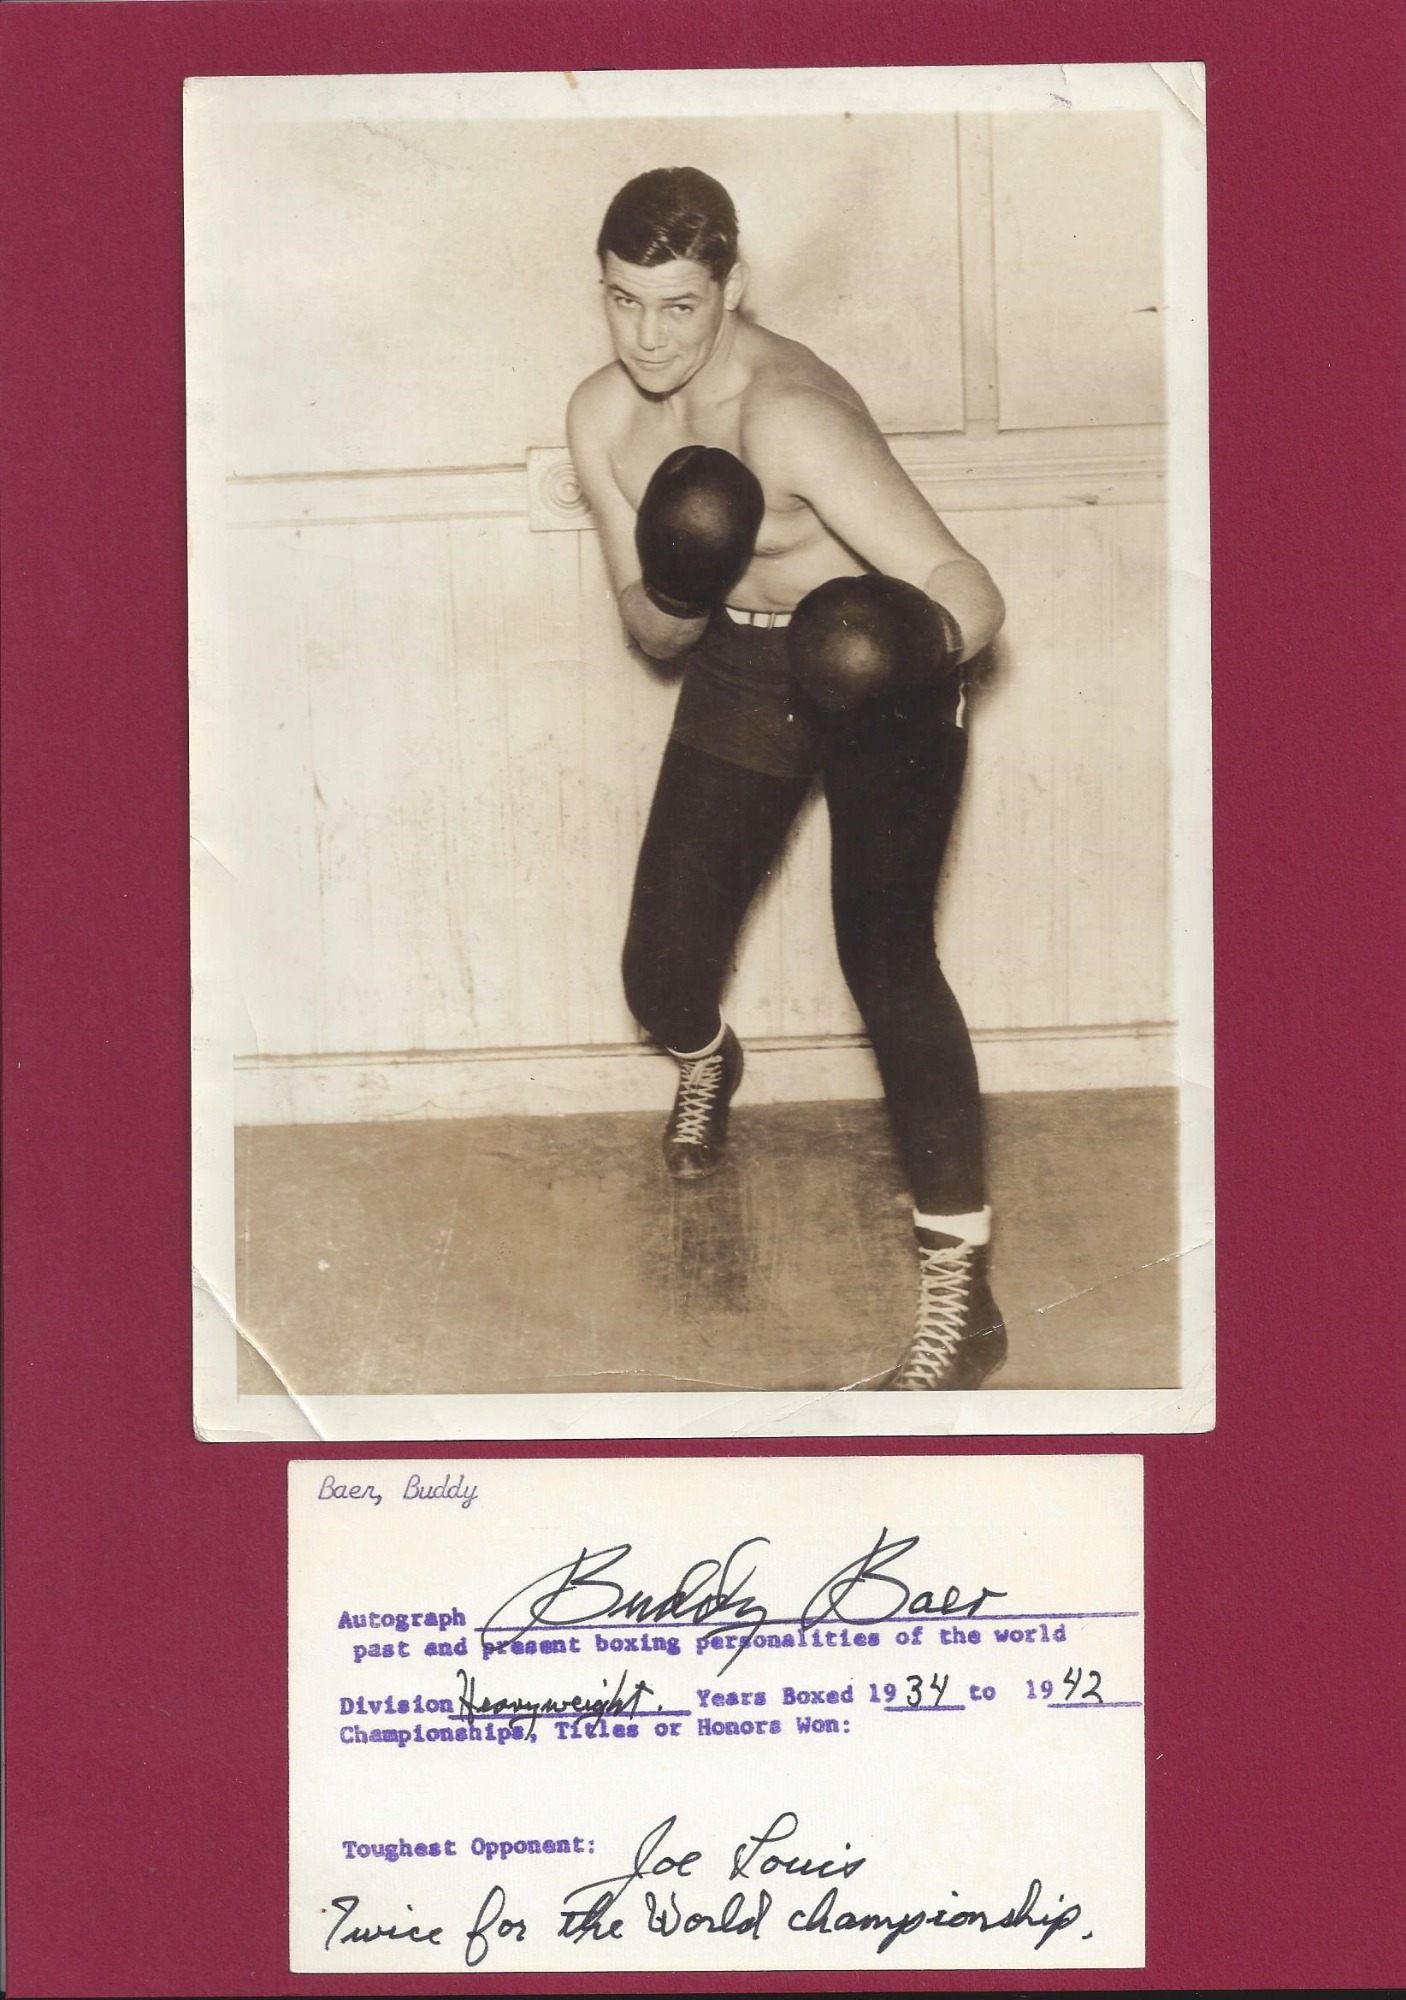 Baer, Buddy
Autograph Buddy Baer
past and present boxing personalities of the world
Division Heavyweight. Years Boxed 1934 to 1942
Championships, Titles or Honors Won:
Toughest Opponent: Joe Louis
Twice for the World championship.